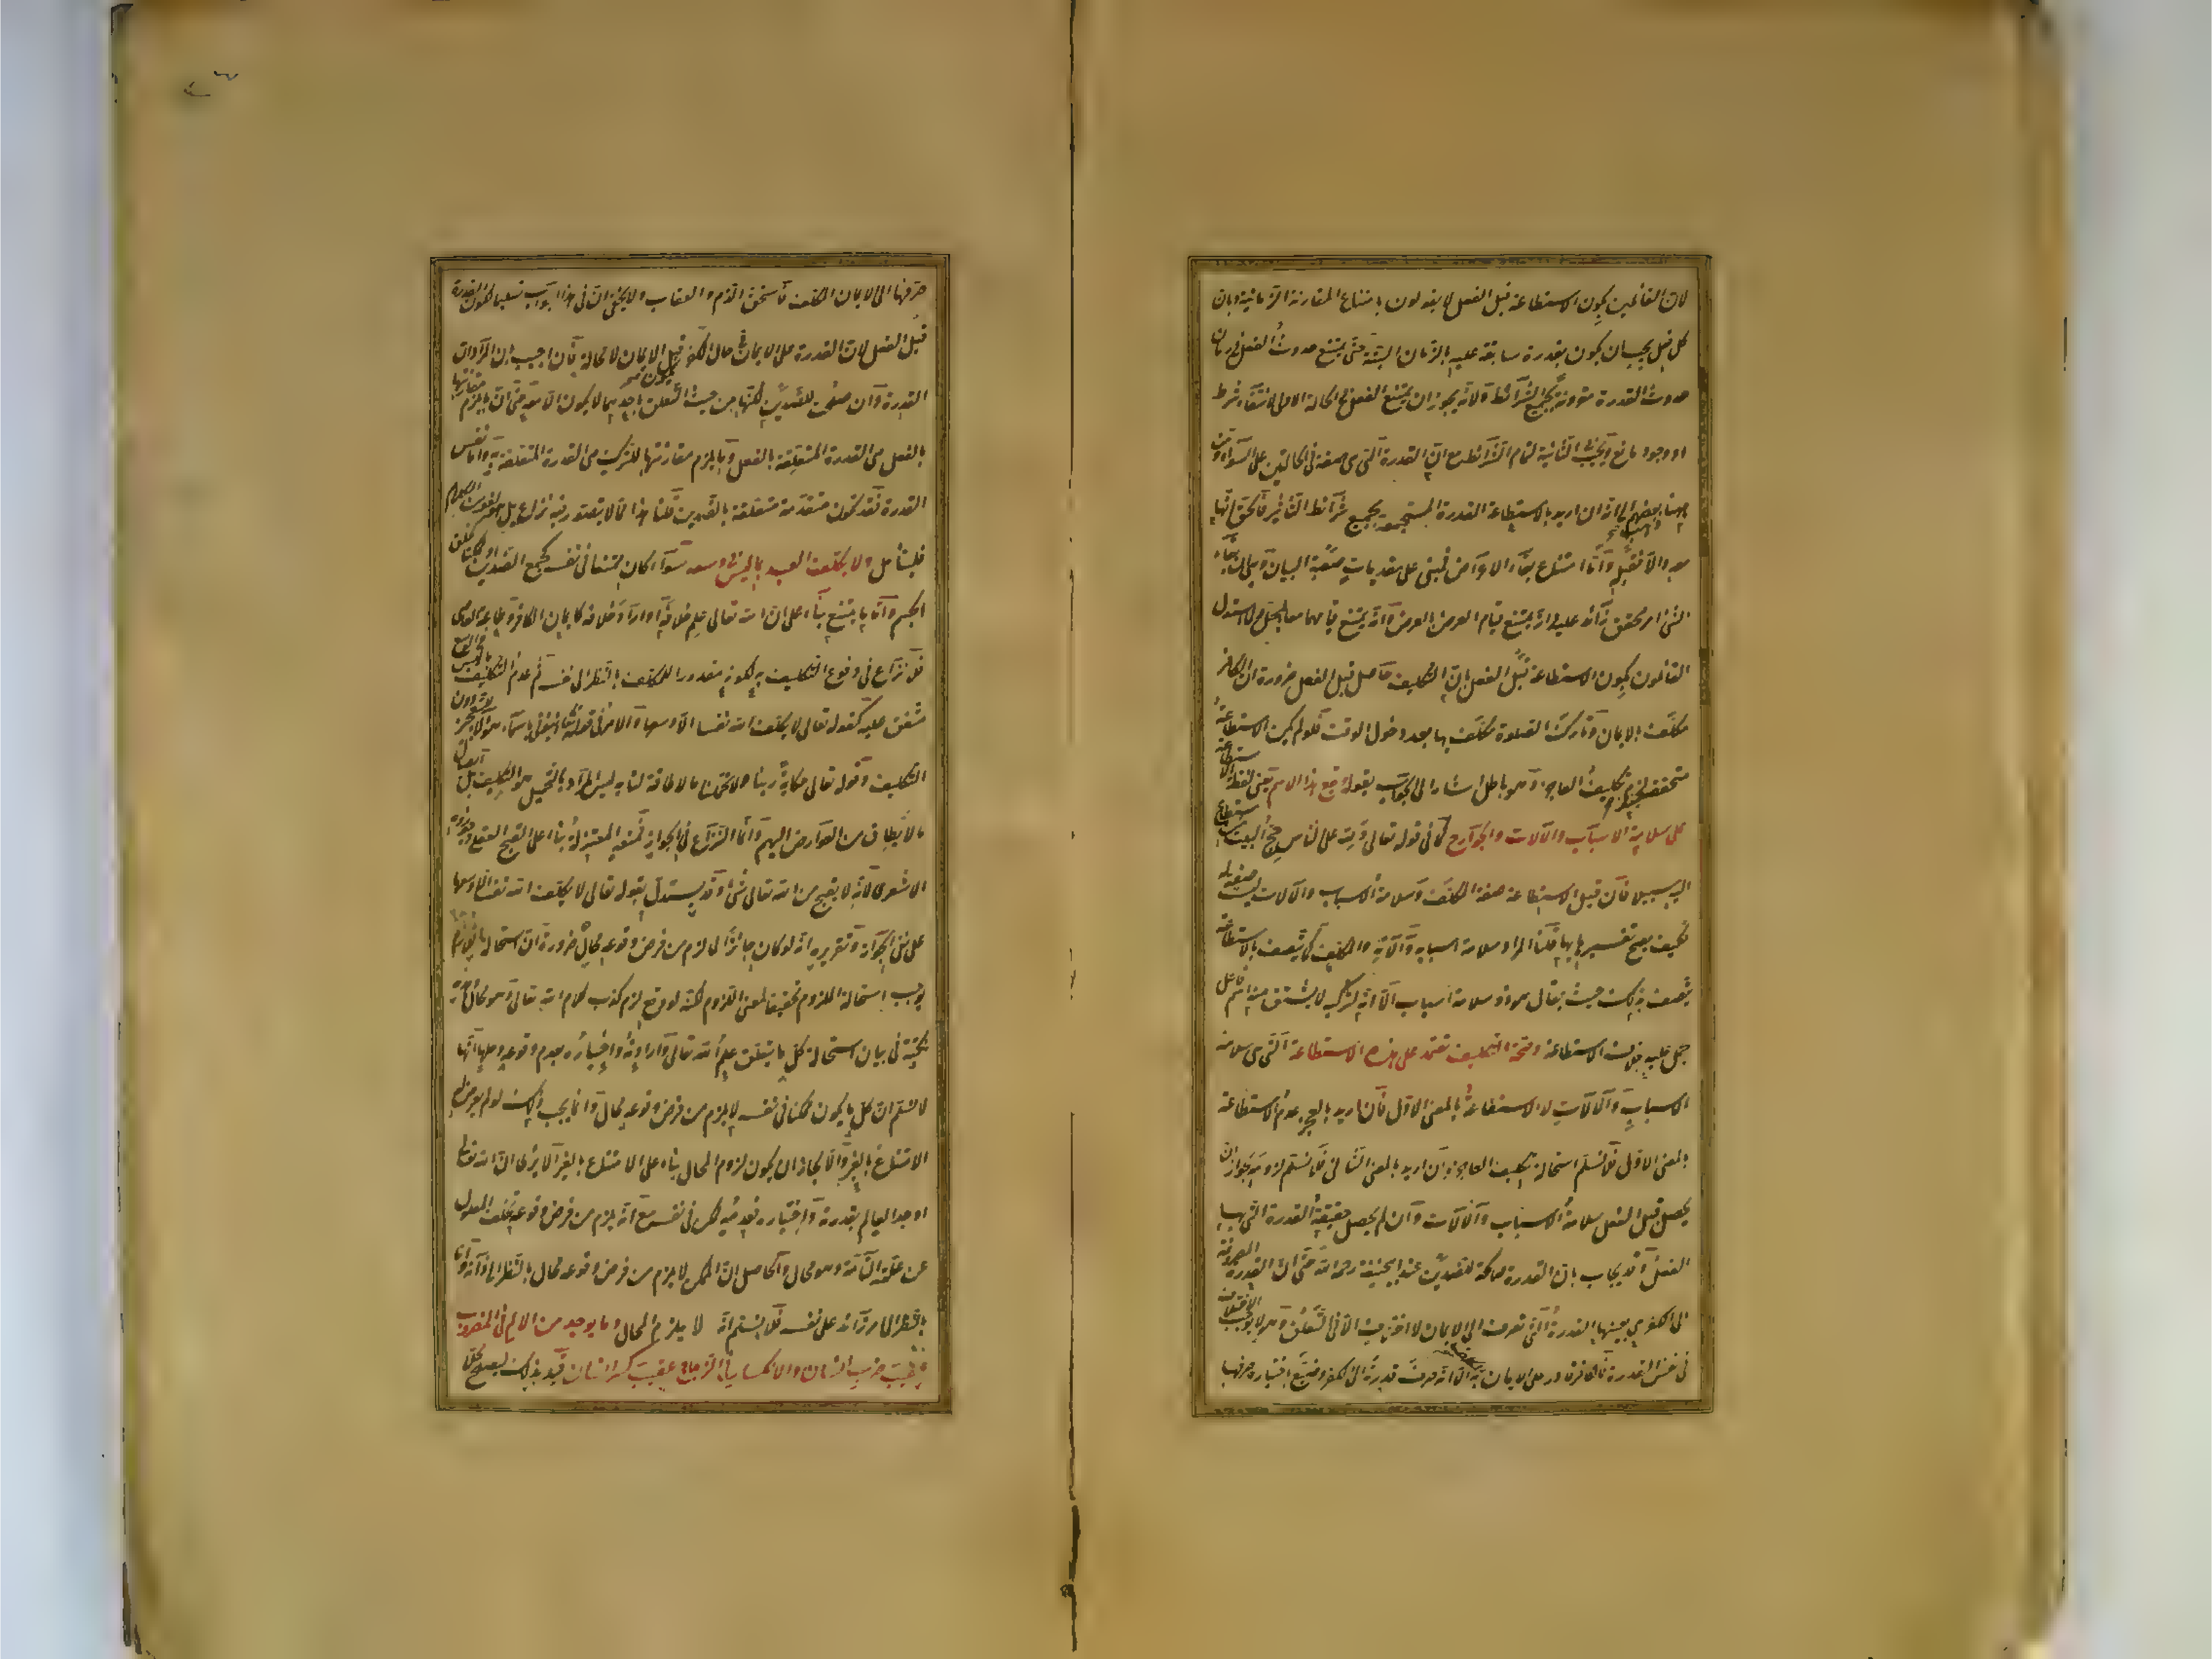 لان القائلين بكون الاستطاعة قبل الفعل لا يقولون بامتناع المقارنة الزمانية وبان
كل فعل يجب ان يكون بقدرة سابقة عليه بالزمان البتة حتى يمتنع حدوث الفعل في زمان
حدوث القدرة مقرونة بجميع الشرائط ولانه يجوز ان يمتنع الفعل في الحالة الاولى لانتفاء شرط
او وجود مانع ويجب في الثانية لتمام الشرائط مع ان القدرة التي هي صفة في الحالتين على السواء ومن
ههنا ذهب بعضهم الى انه ان اريد بالاستطاعة القدرة المستجمعة بجميع شرائط التأثير فالحق انها
مع الفعل والا فقبله واما امتناع بقاء الاعراض فمبني على مقدمات صعبة البيان وهي ان بقاء
الشئ امر محقق زائد عليه وانه يمتنع قيام العرض بالعرض وانه يمتنع قيامهما معا بالمحل ولما استدل
القائلون بكون الاستطاعة قبل الفعل بان التكليف حاصل قبل الفعل ضرورة ان الكافر
مكلف بالايمان وتارك الصلوة مكلف بها بعد دخول الوقت فلو لم يكن الاستطاعة
متحققة لزم تكليف العاجز وهو باطل اشار الى الجواب بقوله ويقع هذا الاسم يعني لفظ الاستطاعة
على سلامة الاسباب والآلات والجوارح كما في قوله تعالى ولله على الناس حج البيت من استطاع
اليه سبيلا فان قيل الاستطاعة صفة المكلف وسلامة الاسباب والآلات ليست صفة له
فكيف يصح تفسيرها بها قلنا المراد سلامة اسبابه وآلاته والمكلف كما يتصف بالاستطاعة
يتصف بذلك حيث يقال هو ذو سلامة اسباب الا انه لتركبه لا يشتق منه اسم فاعل
يحمل عليه بخلاف الاستطاعة وصحة التكليف تعتمد على هذه الاستطاعة التي هي سلامة
الاسباب والآلات لا الاستطاعة بالمعنى الاول فان اريد بالعجز عدم الاستطاعة
بالمعنى الاول فلا نسلم استحالة تكليف العاجز وان اريد بالمعنى الثاني فلا نسلم لزومه لجواز ان
يحصل قبل الفعل سلامة الاسباب والآلات وان لم يحصل حقيقة القدرة التي بها
الفعل وقد يجاب بان القدرة صالحة للضدين عند ابي حنيفة رحمه الله حتى ان القدرة المصروفة
الى الكفر هي بعينها القدرة التي تصرف الى الايمان لا اختلاف الا في التعلق وهو لا يوجب الاختلاف
في نفس القدرة فالكافر قادر على الايمان المكلف به الا انه صرف قدرته الى الكفر وضيع باختياره صرفها
صرفها الى الايمان المكلف فاستحق الذم والعقاب ولا يخفى ان في هذا الجواب تسليما لكون القدرة
قبل الفعل لان القدرة على الايمان في حال الكفر يكون قبل الايمان لا محالة فان اجيب بان المراد ان
القدرة وان صلحت للضدين لكنها من حيث التعلق باحدهما لا يكون الا معه حتى ان ما يلزم مقارنتها
بالفعل هي القدرة المتعلقة بالفعل وما يلزم مقارنتها للترك هي القدرة المتعلقة به واما نفس
القدرة فقد تكون متقدمة متعلقة بالضدين قلنا هذا مما لا يتصور فيه نزاع بل هو لغو من الكلام
فليتأمل ولا يكلف العبد بما ليس في وسعه سواء كان ممتنعا في نفسه كجمع الضدين او ممكنا كخلق
الجسم واما ما يمتنع بناء على ان الله تعالى علم خلافه او اراد خلافه كايمان الكافر وطاعة العاصي
فلا نزاع في وقوع التكليف به لكونه مقدورا للمكلف بالنظر الى نفسه ثم عدم التكليف بما ليس في الوسع
متفق عليه كقوله تعالى لا يكلف الله نفسا الا وسعها والامر في قوله تعالى انبئوني باسماء هؤلاء للتعجيز دون
التكليف وقوله تعالى حكاية ربنا ولا تحملنا ما لا طاقة لنا به ليس المراد بالتحميل هو التكليف بل ايصال
ما لا يطاق من العوارض اليهم وانما النزاع في الجواز فمنعه المعتزلة بناء على القبح العقلي وجوزه
الاشعري لانه لا يقبح من الله تعالى شئ وقد يستدل بقوله تعالى لا يكلف الله نفسا الا وسعها
على نفي الجواز وتقريره انه لو كان جائزا لما لزم من فرض وقوعه محال ضرورة ان استحالة اللازم
توجب استحالة الملزوم تحقيقا لمعنى اللزوم لكنه لو وقع لزم كذب كلام الله تعالى وهو محال وهذه
نكتة في بيان استحالة كل ما يتعلق علم الله تعالى وارادته واختياره بعدم وقوعه وحلها انا
لا نسلم ان كل ما يكون ممكنا في نفسه لا يلزم من فرض وقوعه محال وانما يجب ذلك لو لم يعرض له
الامتناع بالغير والا لجاز ان يكون لزوم المحال بناء على الامتناع بالغير الا يرى ان الله تعالى
اوجد العالم بقدرته واختياره فعدمه ممكن في نفسه مع انه يلزم من فرض وقوعه تخلف المعلول
عن علته التامة وهو محال والحاصل ان الممكن لا يلزم من فرض وقوعه محال بالنظر الى ذاته واما
بالنظر الى امر زائد على نفسه فلا نسلم انه لا يلزم المحال وما يوجد من الالم في المضروب
عقيب ضرب انسان والانكسار في الزجاج عقيب كسر انسان قيد بذلك ليصلح محل